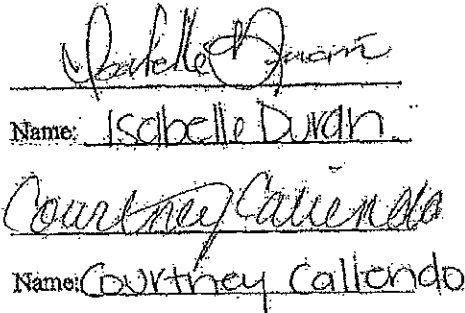 Isabelle Duran
Name: Isabelle Duran
Courtney Caliendo
Name: Courtney Caliendo